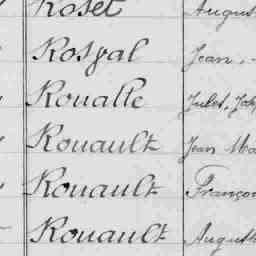 Roset August
Rosyal Jean, -
Roualle Jules, Jos
Rouault Jean Ma
Rouault Françoi
Rouault Auguste